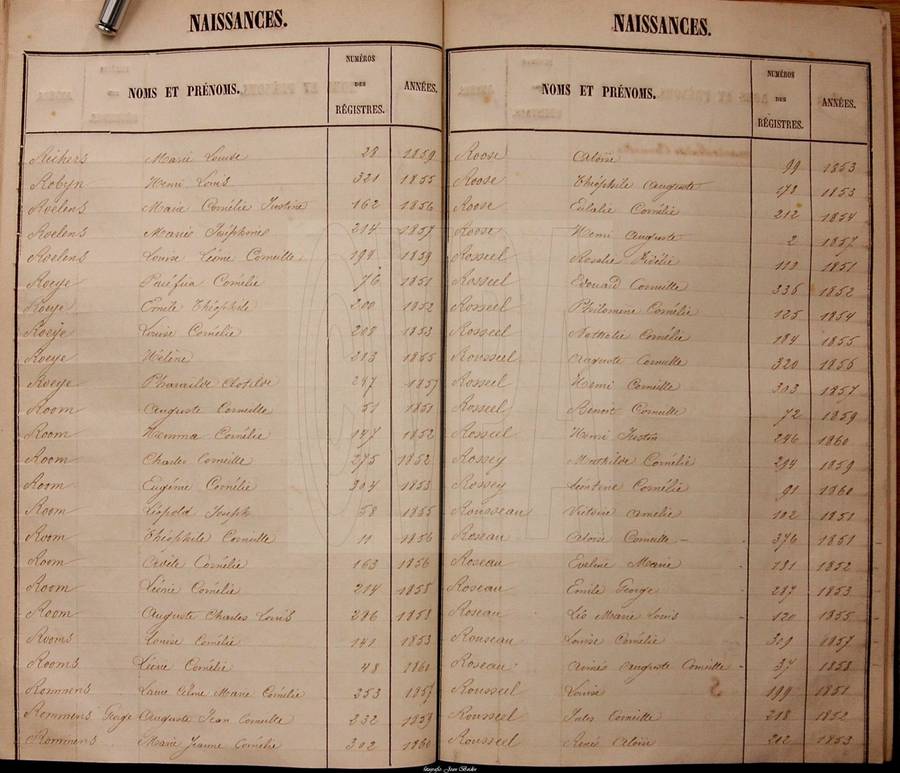 NAISSANCES.
NOMS ET PRÉNOMS. NUMÉROS DES RÉGISTRES. ANNÉES.
Reihers Marie Louise 28 1859
Robyn Henri Louis 321 1855
Roelens Marie Cornélie Justine 162 1856
Roelens Marie Joséphine 214 1857
Roelens Louise Léonie Corneille 199 1859
Roeye Cornélie 76 1851
Roeye Emile Théophile 200 1852
Roeye Louise Cornélie 208 1853
Roeye Hélène 213 1855
Roeye Pharaïlde Clotilde 287 1857
Room Auguste Corneille 51 1851
Room Hemma Cornélie 147 1852
Room Charles Corneille 275 1852
Room Eugénie Cornélie 304 1853
Room Léopold Joseph 58 1855
Room Théophile Corneille 11 1856
Room Cornélie 163 1856
Room Léonie Cornélie 214 1858
Room Auguste Charles Louis 286 1858
Rooms Louise Cornélie 141 1853
Rooms Cornélie 48 1860
Rommens Marie Cornélie 253 1857
Rommens George Auguste Jean Corneille 232 1859
Rommens Marie Jeanne Cornélie 302 1860
NAISSANCES.
NOMS ET PRÉNOMS. NUMÉROS DES RÉGISTRES. ANNÉES.
Roose Aloïse 99 1853
Roose Théophile Auguste 172 1853
Roose Eulalie Cornélie 212 1854
Roose Henri Auguste 2 1857
Rosseel Rosalie Fidélie 1851
Rosseel Edouard Corneille 335 1852
Rosseel Philomène Cornélie 125 1854
Rosseel Nathalie Cornélie 184 1855
Rousseel Auguste Corneille 320 1856
Rosseel Henri Corneille 303 1857
Rosseel Benoit Corneille 72 1859
Rosseel Henri Justin 246 1860
Rossey Mathilde Cornélie 294 1859
Rossey Léontine Cornélie 91 1860
Rousseau Victoire Amélie 102 1851
Roseau Aloïse Corneille 376 1851
Roseau Eveline Marie 181 1852
Roseau Emile George 287 1853
Roseau Léo Marie Louis 120 1855
Rousseau Louise Cornélie 309 1857
Roseau Aimée Auguste Corneille 37 1858
Rousseel Louise 199 1851
Rousseel Jules Corneille 218 1852
Rousseel René Aloïse 212 1853